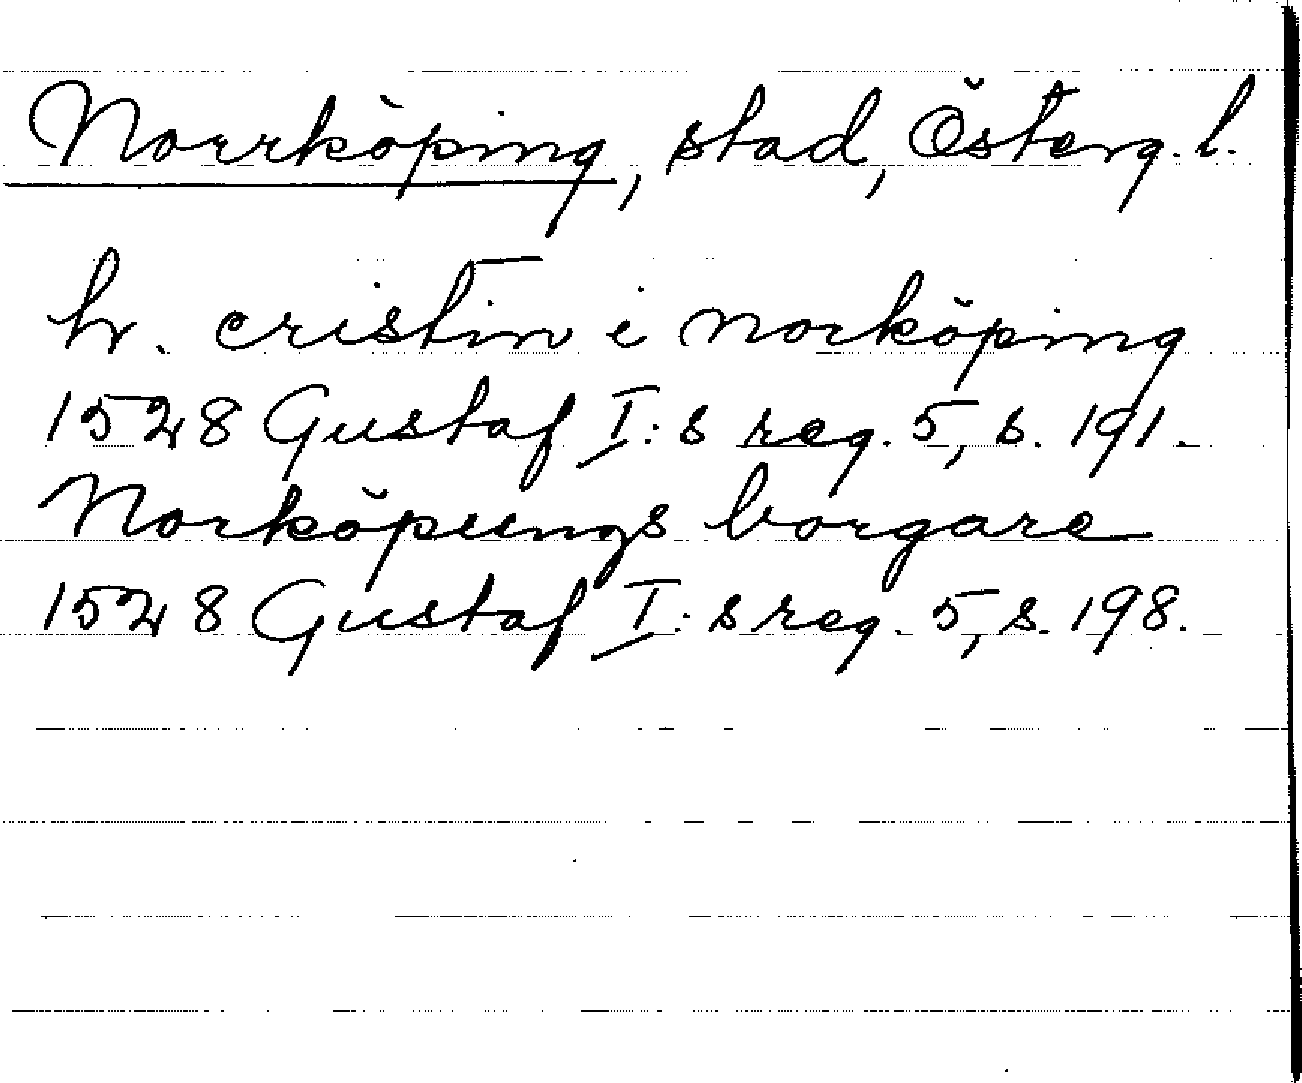 Norrköping, stad, Österg. l.
hr. cristin i norköping
1528 Gustaf I: s reg. 5, s. 191.
Norköpungs borgare
1528 Gustaf I: s reg. 5, s. 198.